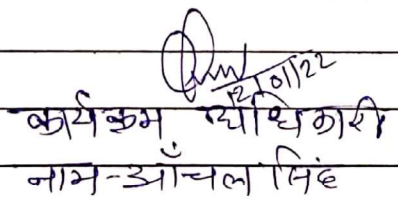 12/01/22
कार्यक्रम अधिकारी
नाम-आँचल सिंह